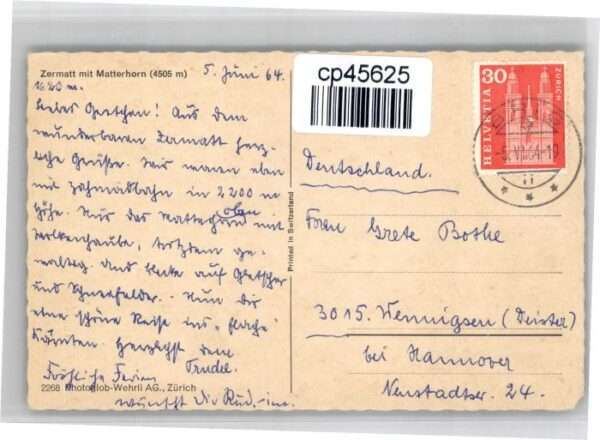 Zermatt mit Matterhorn (4505 m)
1620 m.
5. Juni 64.
Liebes Gretchen! Aus dem
wunderbaren Zermatt herz-
liche Grüße. Wir waren eben
mit Zahnradbahn in 2200 m
Höhe. Nur das Matterhorn oben mit
Wolkenhaube, trotzdem ge-
waltig. Und Blicke auf Gletscher
und Schneefelder. Nun Dir
eine schöne Reise ins "flache"
Kärnten. Herzlichst Deine
Trudel.
Fröhliche Ferien
wünscht Dir
2268 Photoglob-Wehrli AG., Zürich
Printed in Switzerland
cp45625
30
HELVETIA
ZÜRICH
Deutschland.
Frau Grete Bothe
3015. Wennigsen (Deister)
bei Hannover
Neustadtstr. 24.